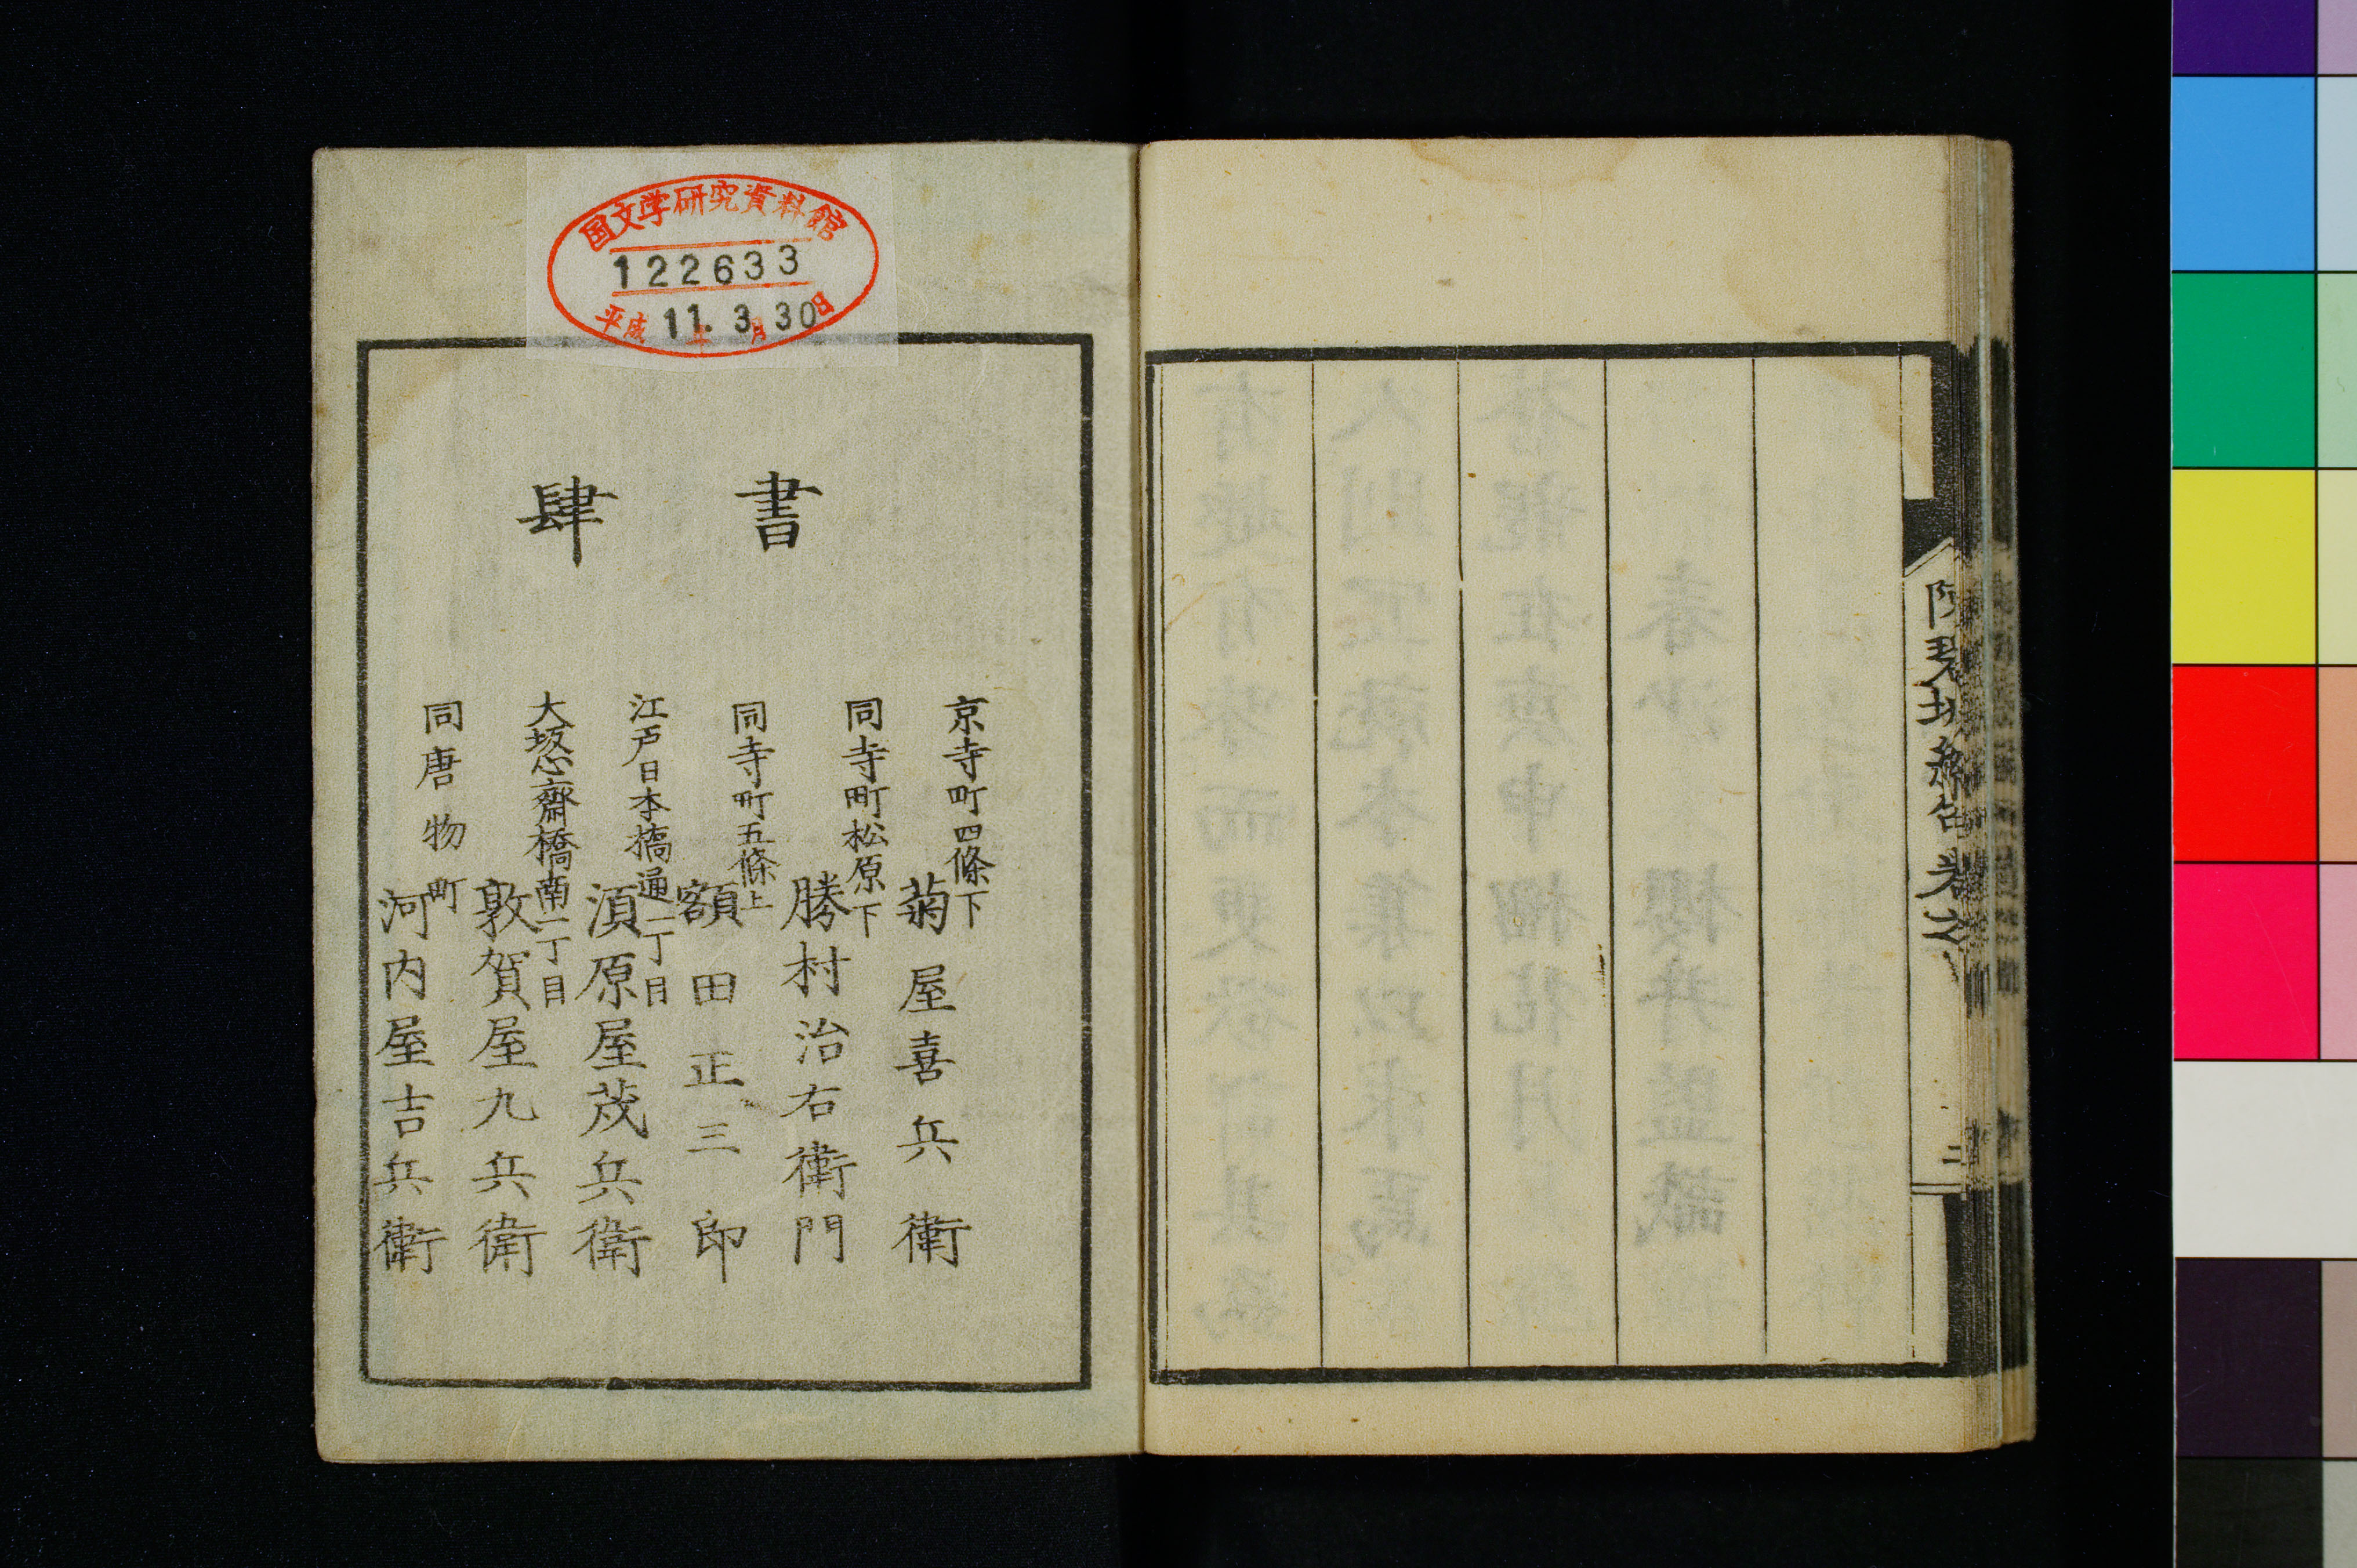 国文学研究資料館
122633
平成11年3月30日
書肆
京寺町四條下
菊屋喜兵衛
同寺町松原下
勝村治右衛門
同寺町五條上
額田正三郎
江戸日本橋通一丁目
須原屋茂兵衛
大坂心齋橋南一丁目
敦賀屋九兵衛
同唐物町
河内屋吉兵衛